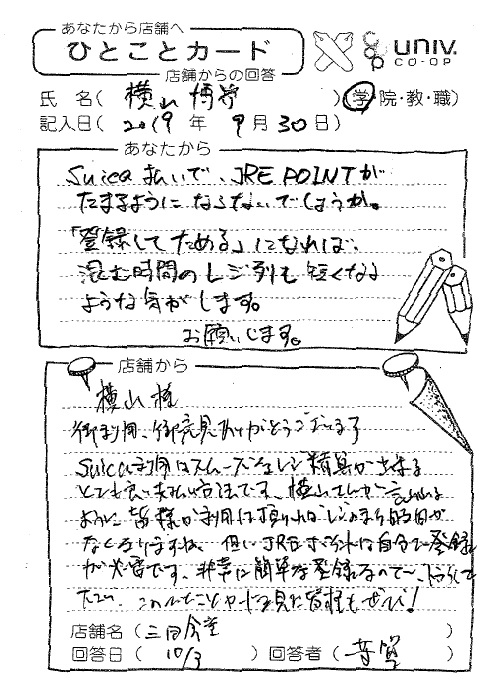 あなたから店舗へ
ひとことカード
店舗からの回答
UNIV.
CO-OP
氏 名( 横山 )(学・院・教・職)
記入日( 2019 年 9 月 30 日)
あなたから
Suica払いで、JRE POINTが
たまるようにならないでしょうか。
「登録してためる」になれば、
混む時間のレジ列も短くなる
ような気がします。
お願いします。
店舗から
横山様
御利用、御意見ありがとうございます
Suica利用はスムーズなレジ精算が出来る
とても良い支払い方法です。横山さんが言われる
ように皆様が利用して頂ければレジのまち時間が
なくなりますね。但しJREポイントは自分で登録
が必要です。非常に簡単な登録なので〜、トライして
下さい。このひとことカードを見た皆様もぜひ!
店舗名( 三田食堂 )
回答日( 10/3 )回答者( )